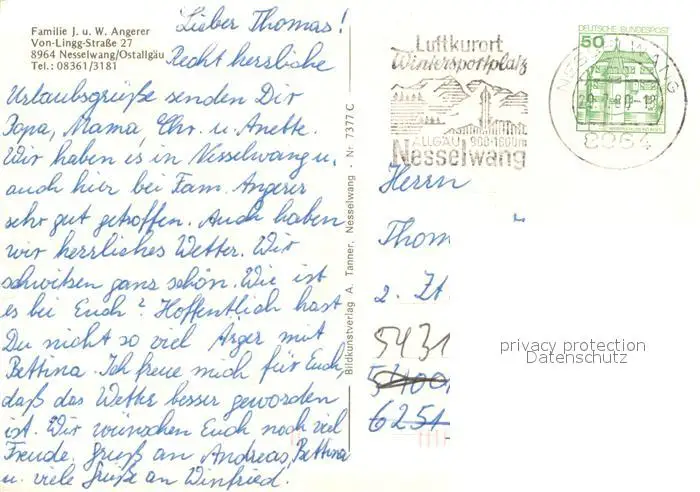 Familie J. u. W. Angerer
Von-Lingg-Straße 27
8964 Nesselwang/Ostallgäu
Tel.: 08361/3181
Lieber Thomas!
Recht herrliche
Urlaubsgrüße senden Dir
Papa, Mama, Chr. u. Anette.
Wir haben es in Nesselwang u.
auch hier bei Fam. Angerer
sehr gut getroffen. Auch haben
wir herrliches Wetter. Wir
schwitzen ganz schön. Wie ist
es bei Euch? Hoffentlich hast
Du nicht so viel Ärger mit
Bettina. Ich freue mich für Euch,
daß das Wetter besser geworden
ist. Wir wünschen Euch noch viel
Freude. Gruß an Andreas, Bettina
u. viele Grüße an Winfried.
Bildkunstverlag A. Tanner, Nesselwang · Nr. 7377 C
Luftkurort
Wintersportplatz
ALLGÄU 900-1600m
Nesselwang
DEUTSCHE BUNDESPOST
50
NESSELWANG
8964
Herrn
Thom
2. Zt.
5431
5400
6251
privacy protection
Datenschutz